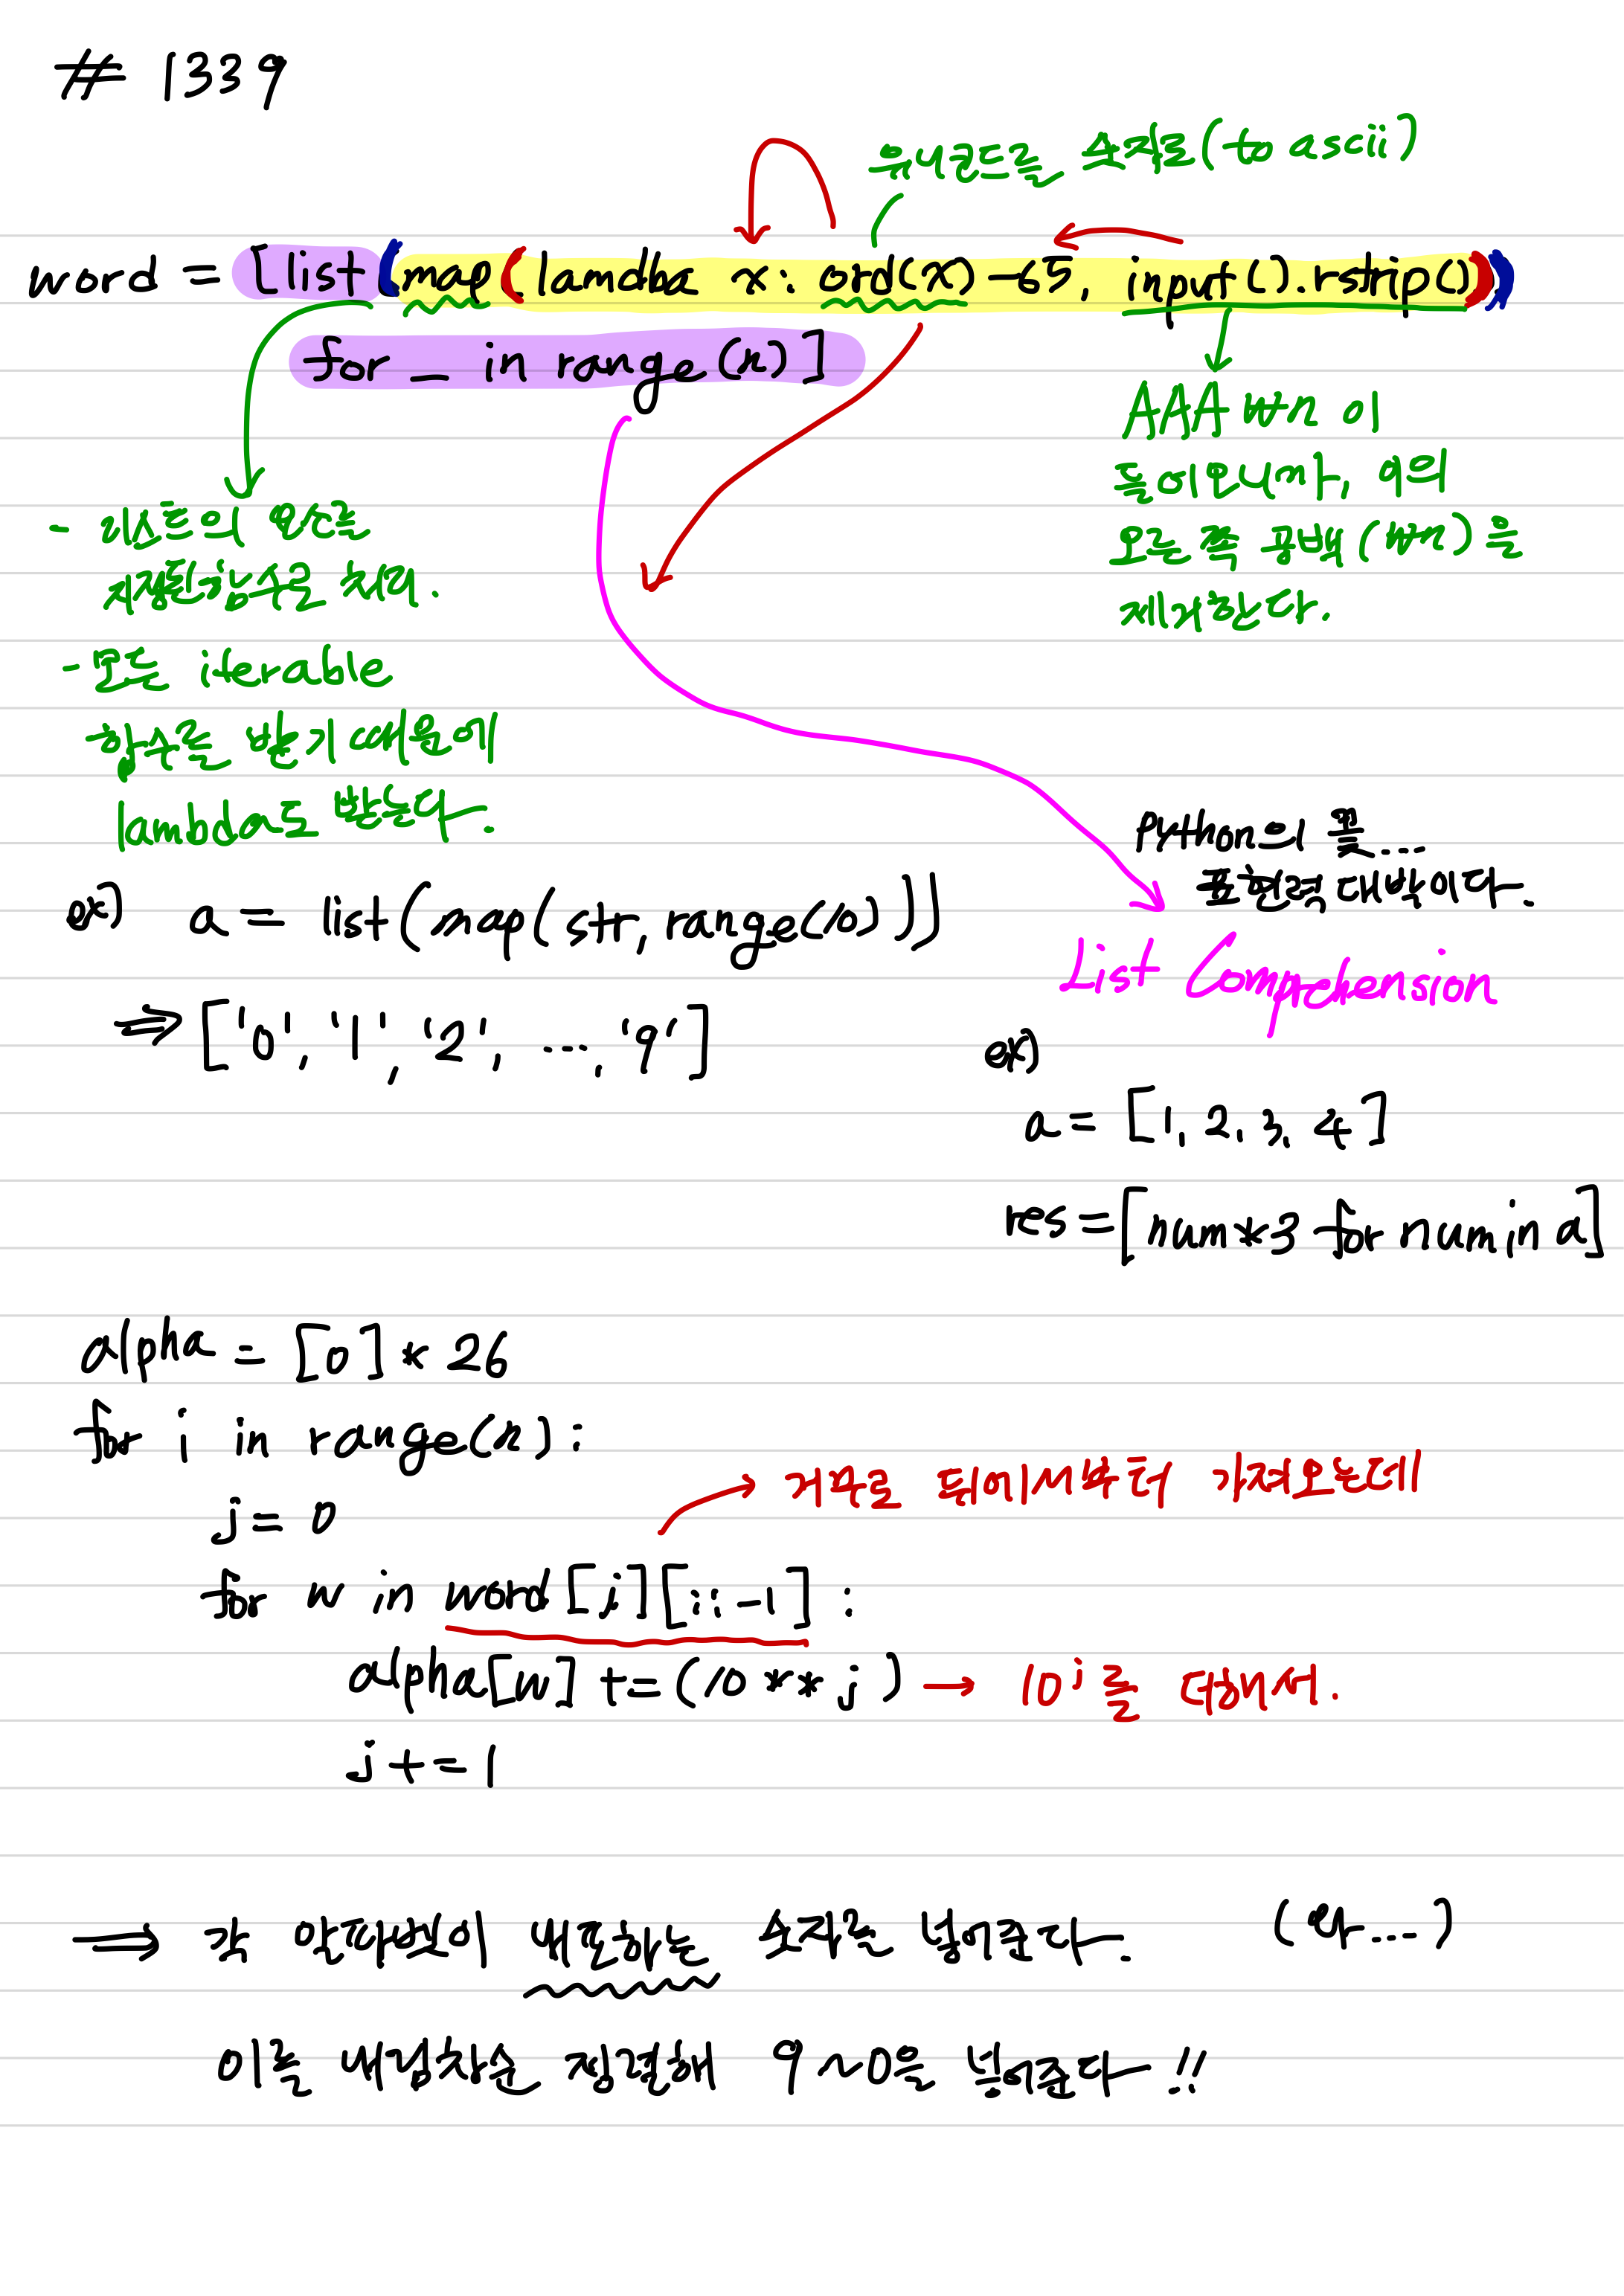 # 1339
유니코드를 숫자로(to ascii)
word = [list(map(lamdba x: ord(x)-65, input().rstrip()))
for _ in range(n)]
AAA\n 이
들어오니까, 이의
오른쪽 공백(\n)을
제거한다.
- 리스트의 요소를
지정된 함수로 처리.
- 모든 iterable
함수를 받기 때문에
lambda도 받는다.
ex) a = list(map(str, range(10)))
⇒ ['0', '1', '2', ..., '9']
Python의 꽃....
표현력 대박이다..
List Comprehension
ex)
a = [1, 2, 3, 4]
res = [num*3 for num in a]
alpha = [0] * 26
for i in range(n):
j = 0
→ 거꾸로 뒤에서부터 가져오는데
for w in word[i][::-1]:
alpha[w] += (10 ** j) → 10ʲ를 더해서.
j += 1
→ 각 알파벳이 내포하는 숫자를 넣어준다. (와....)
이를 내림차순 정렬해 9~0을 넣어준다!!